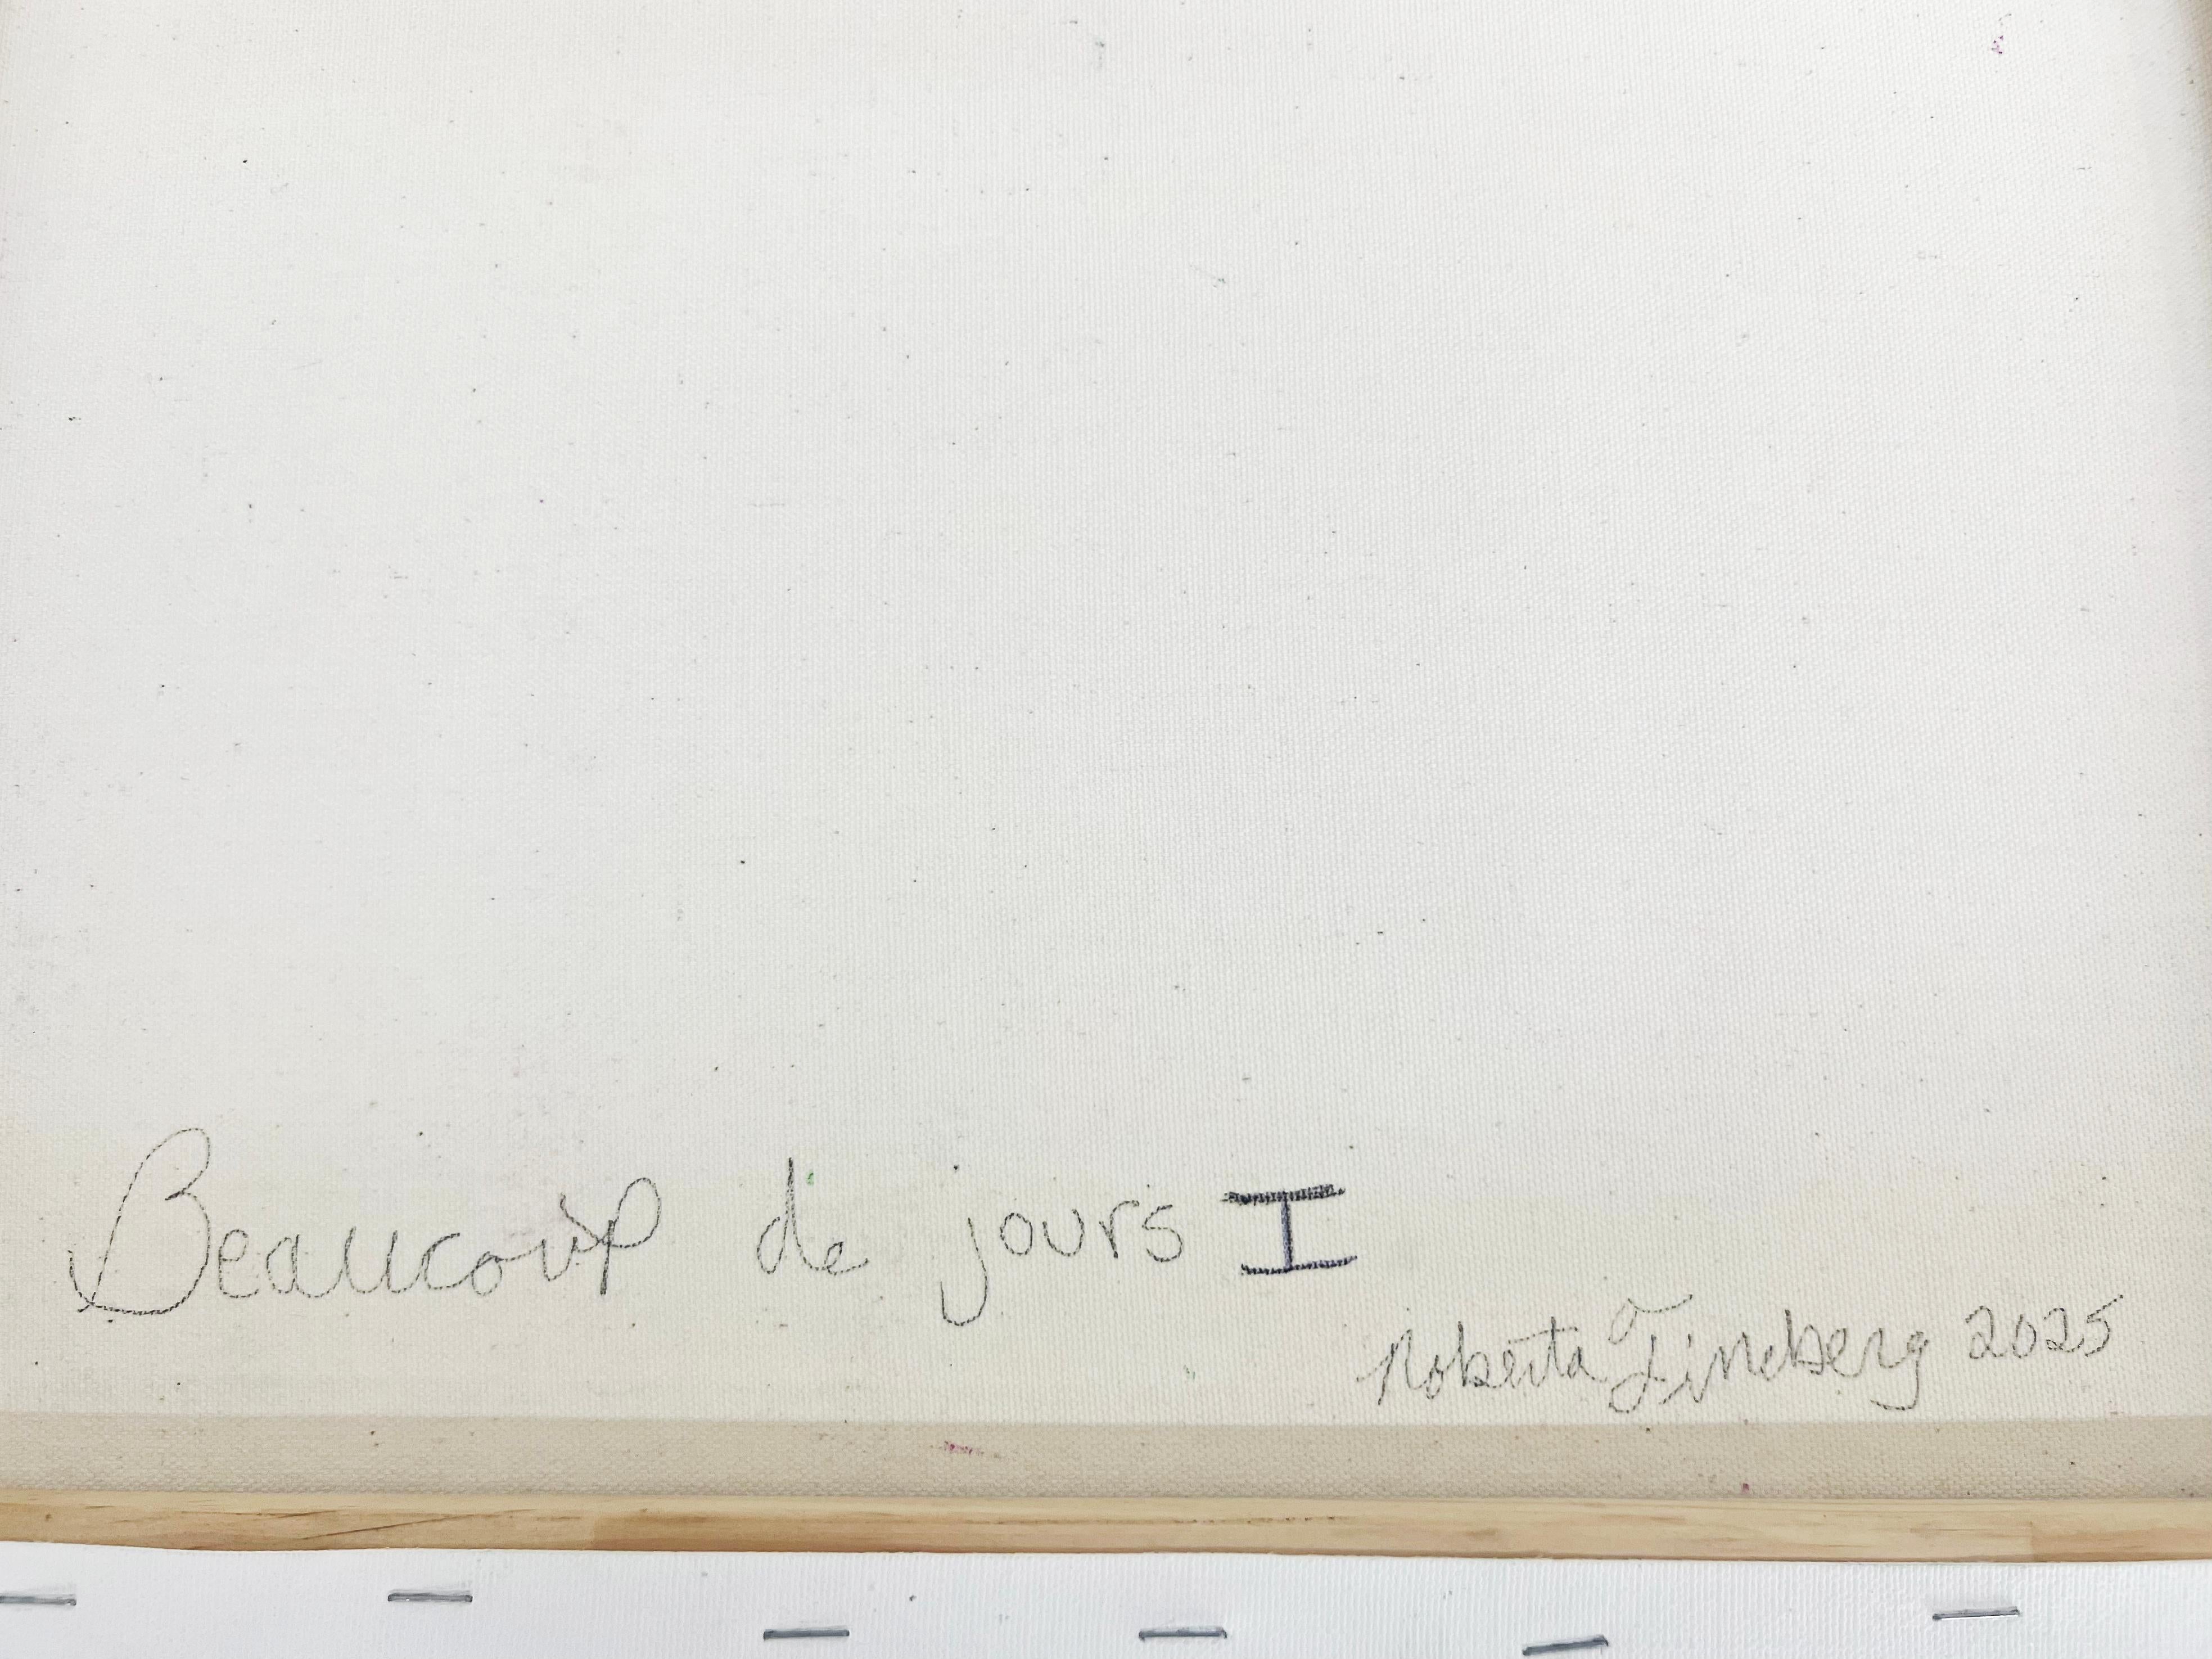 Beaucoup de jours I
Roberta Fineberg 2025